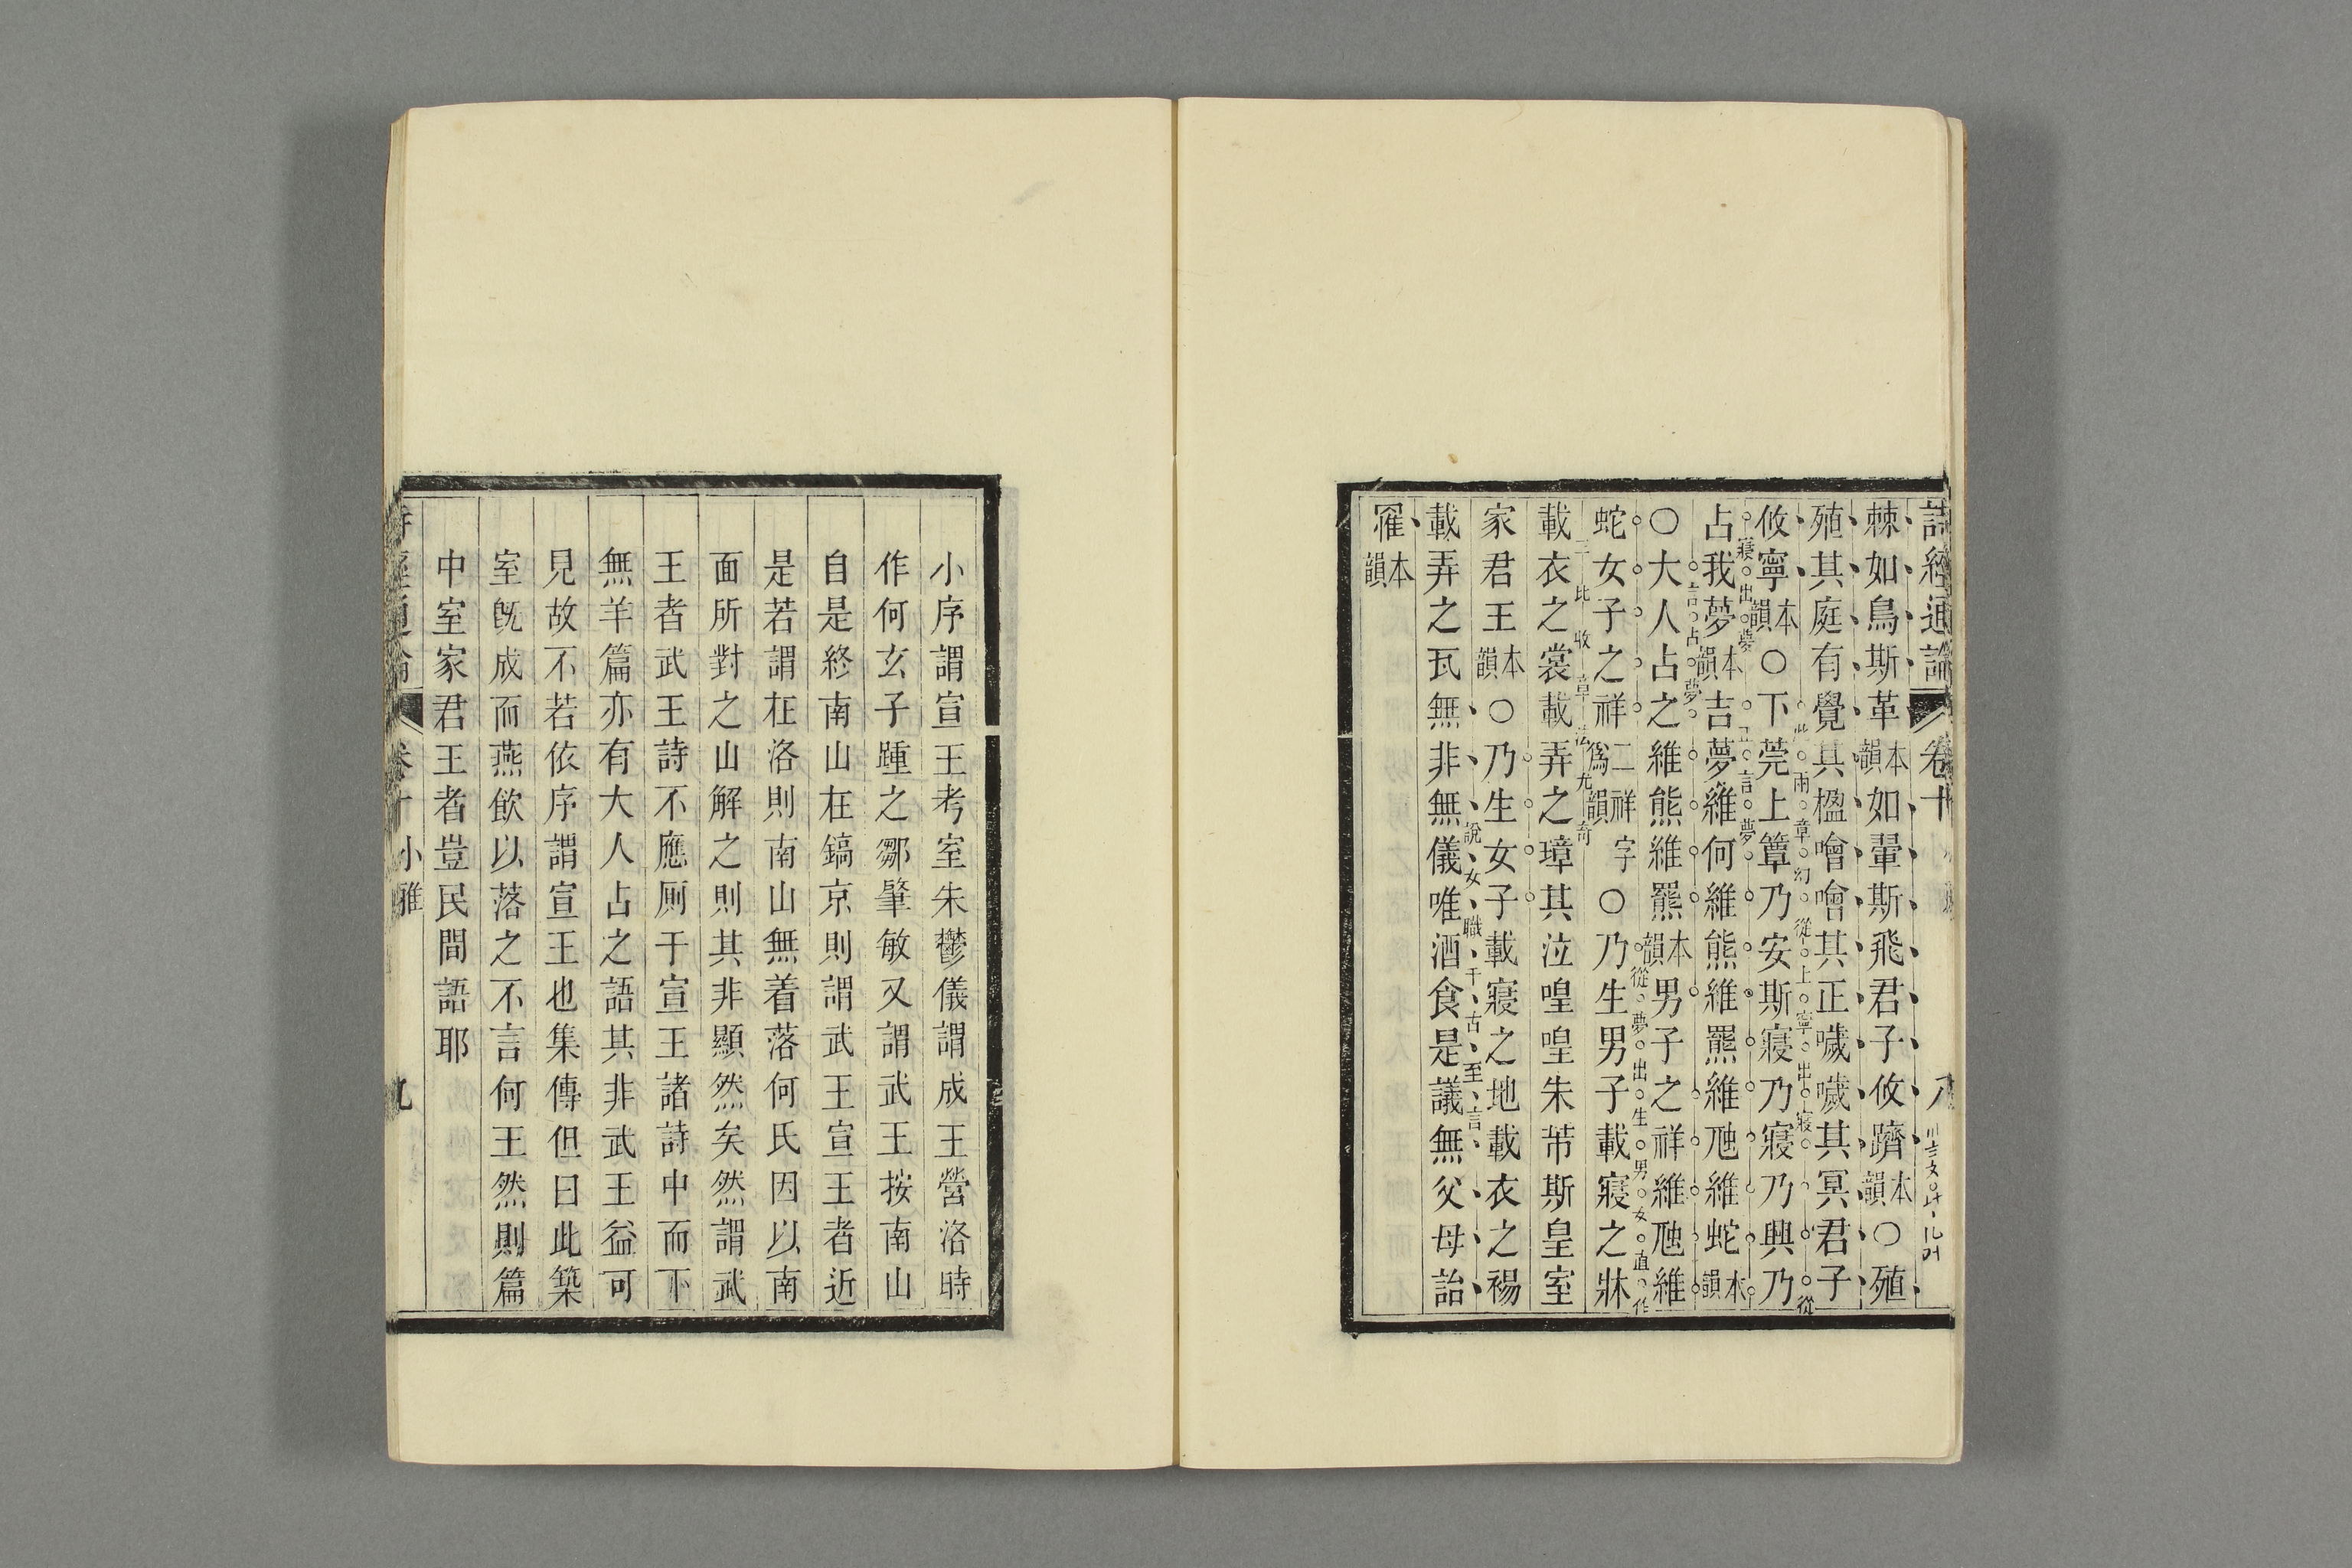 詩經通論 卷十 八
棘如鳥斯革本韻如翬斯飛君子攸躋本韻〇殖
殖其庭有覺其楹噲噲其正噦噦其冥君子
攸寧本韻〇下莞上簟乃安斯寢乃寢乃興乃
此兩章幻從上寧出寢從
占我夢本韻吉夢維何維熊維羆維虺維蛇本韻
寢出夢 言夢
〇大人占之維熊維羆本韻男子之祥維虺維
言占夢
蛇女子之祥二祥字爲韻〇乃生男子載寢之牀
從夢出生男女直作
載衣之裳載弄之璋其泣喤喤朱芾斯皇室
三比收章法尤奇
家君王本韻〇乃生女子載寢之地載衣之裼
載弄之瓦無非無儀唯酒食是議無父母詒
說女職千古至言
罹本韻
小序謂宣王考室朱鬱儀謂成王營洛時
作何玄子踵之鄒肇敏又謂武王按南山
自是終南山在鎬京則謂武王宣王者近
是若謂在洛則南山無着落何氏因以南
面所對之山解之則其非顯然矣然謂武
王者武王詩不應厠于宣王諸詩中而下
無羊篇亦有大人占之語其非武王益可
見故不若依序謂宣王也集傳但曰此築
室旣成而燕飲以落之不言何王然則篇
中室家君王者豈民間語耶
卷十 小雅 九